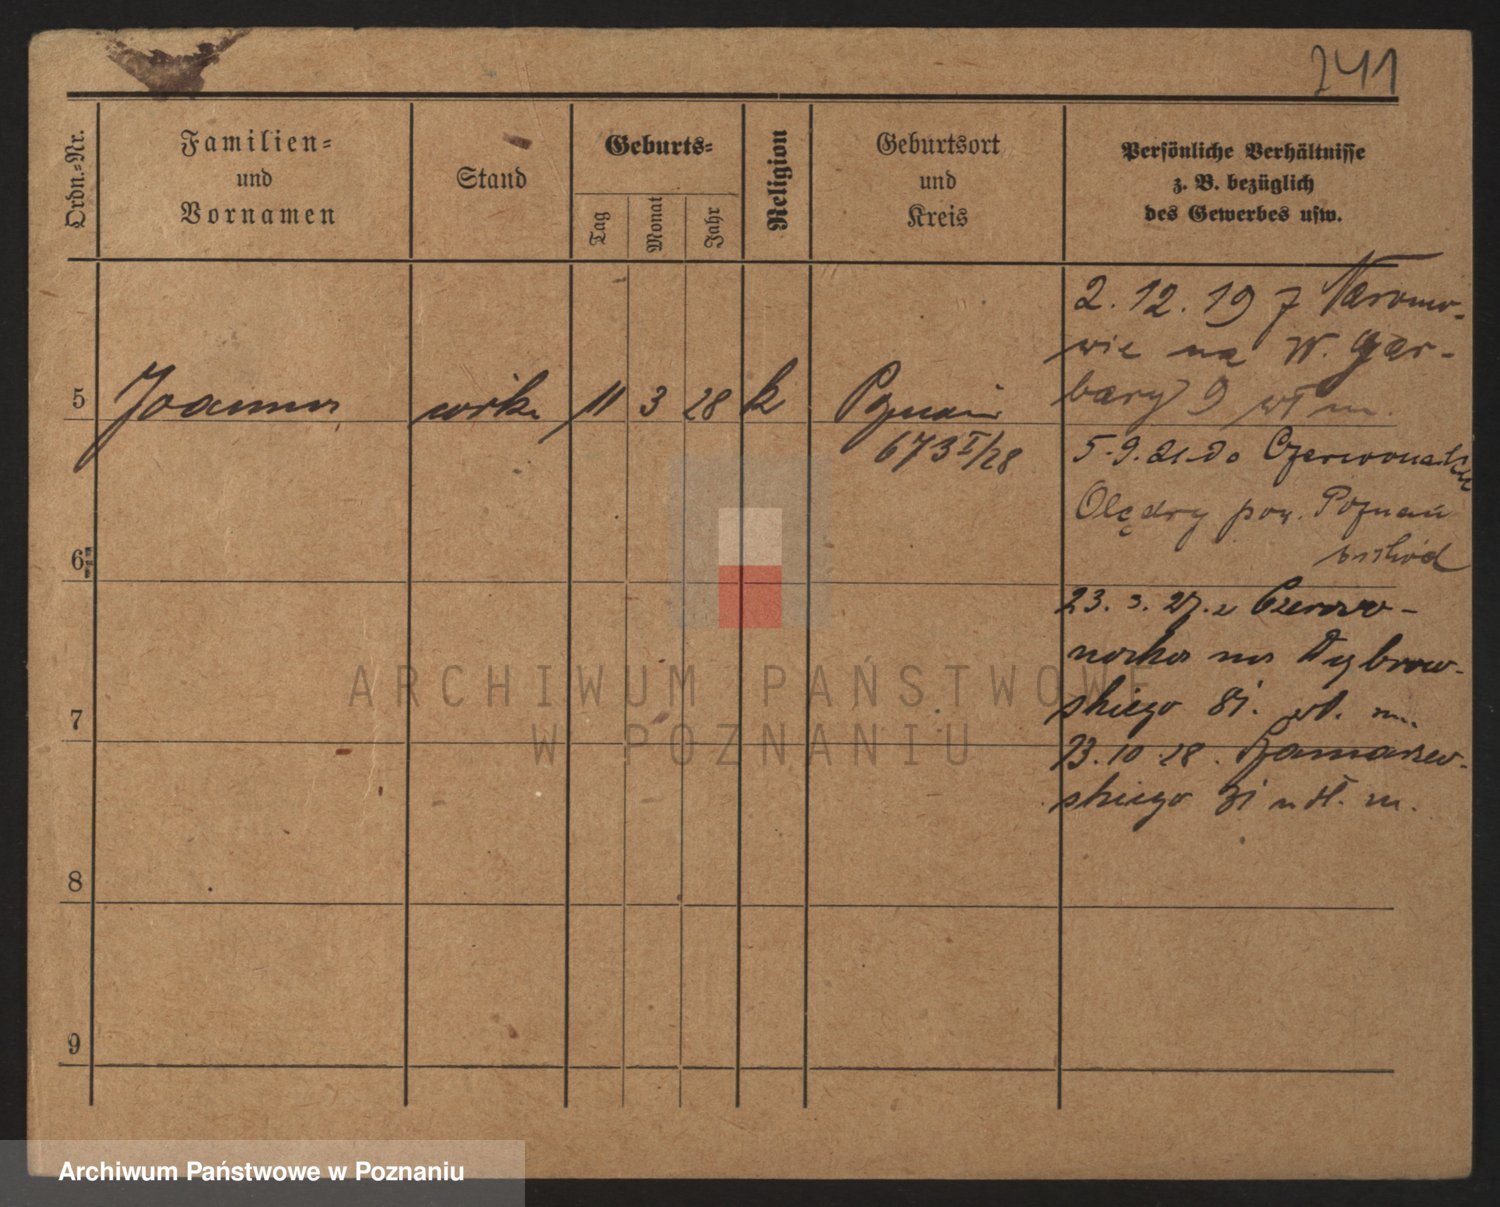 241
Ordn.-Nr.
Familien-
und
Vornamen
Stand
Geburts-
Tag
Monat
Jahr
Religion
Geburtsort
und
Kreis
Persönliche Verhältnisse
z. B. bezüglich
des Gewerbes usw.
2. 12. 19 z Naramo-
wic na W. Gar-
bary 9 wł m.
5 Joanna córka 11 3 28 k Poznań
673 I/28
5.9.21 do Czerwonak
Olędry pow. Poznań
wschód
6
23. 3. 27. z Czerwo-
naka na Dąbrow-
skiego 81. wł. m.
7
23.10 28. Szamarzew-
skiego 31 u wł. m.
8
9
ARCHIWUM PAŃSTWOWE
W POZNANIU
Archiwum Państwowe w Poznaniu